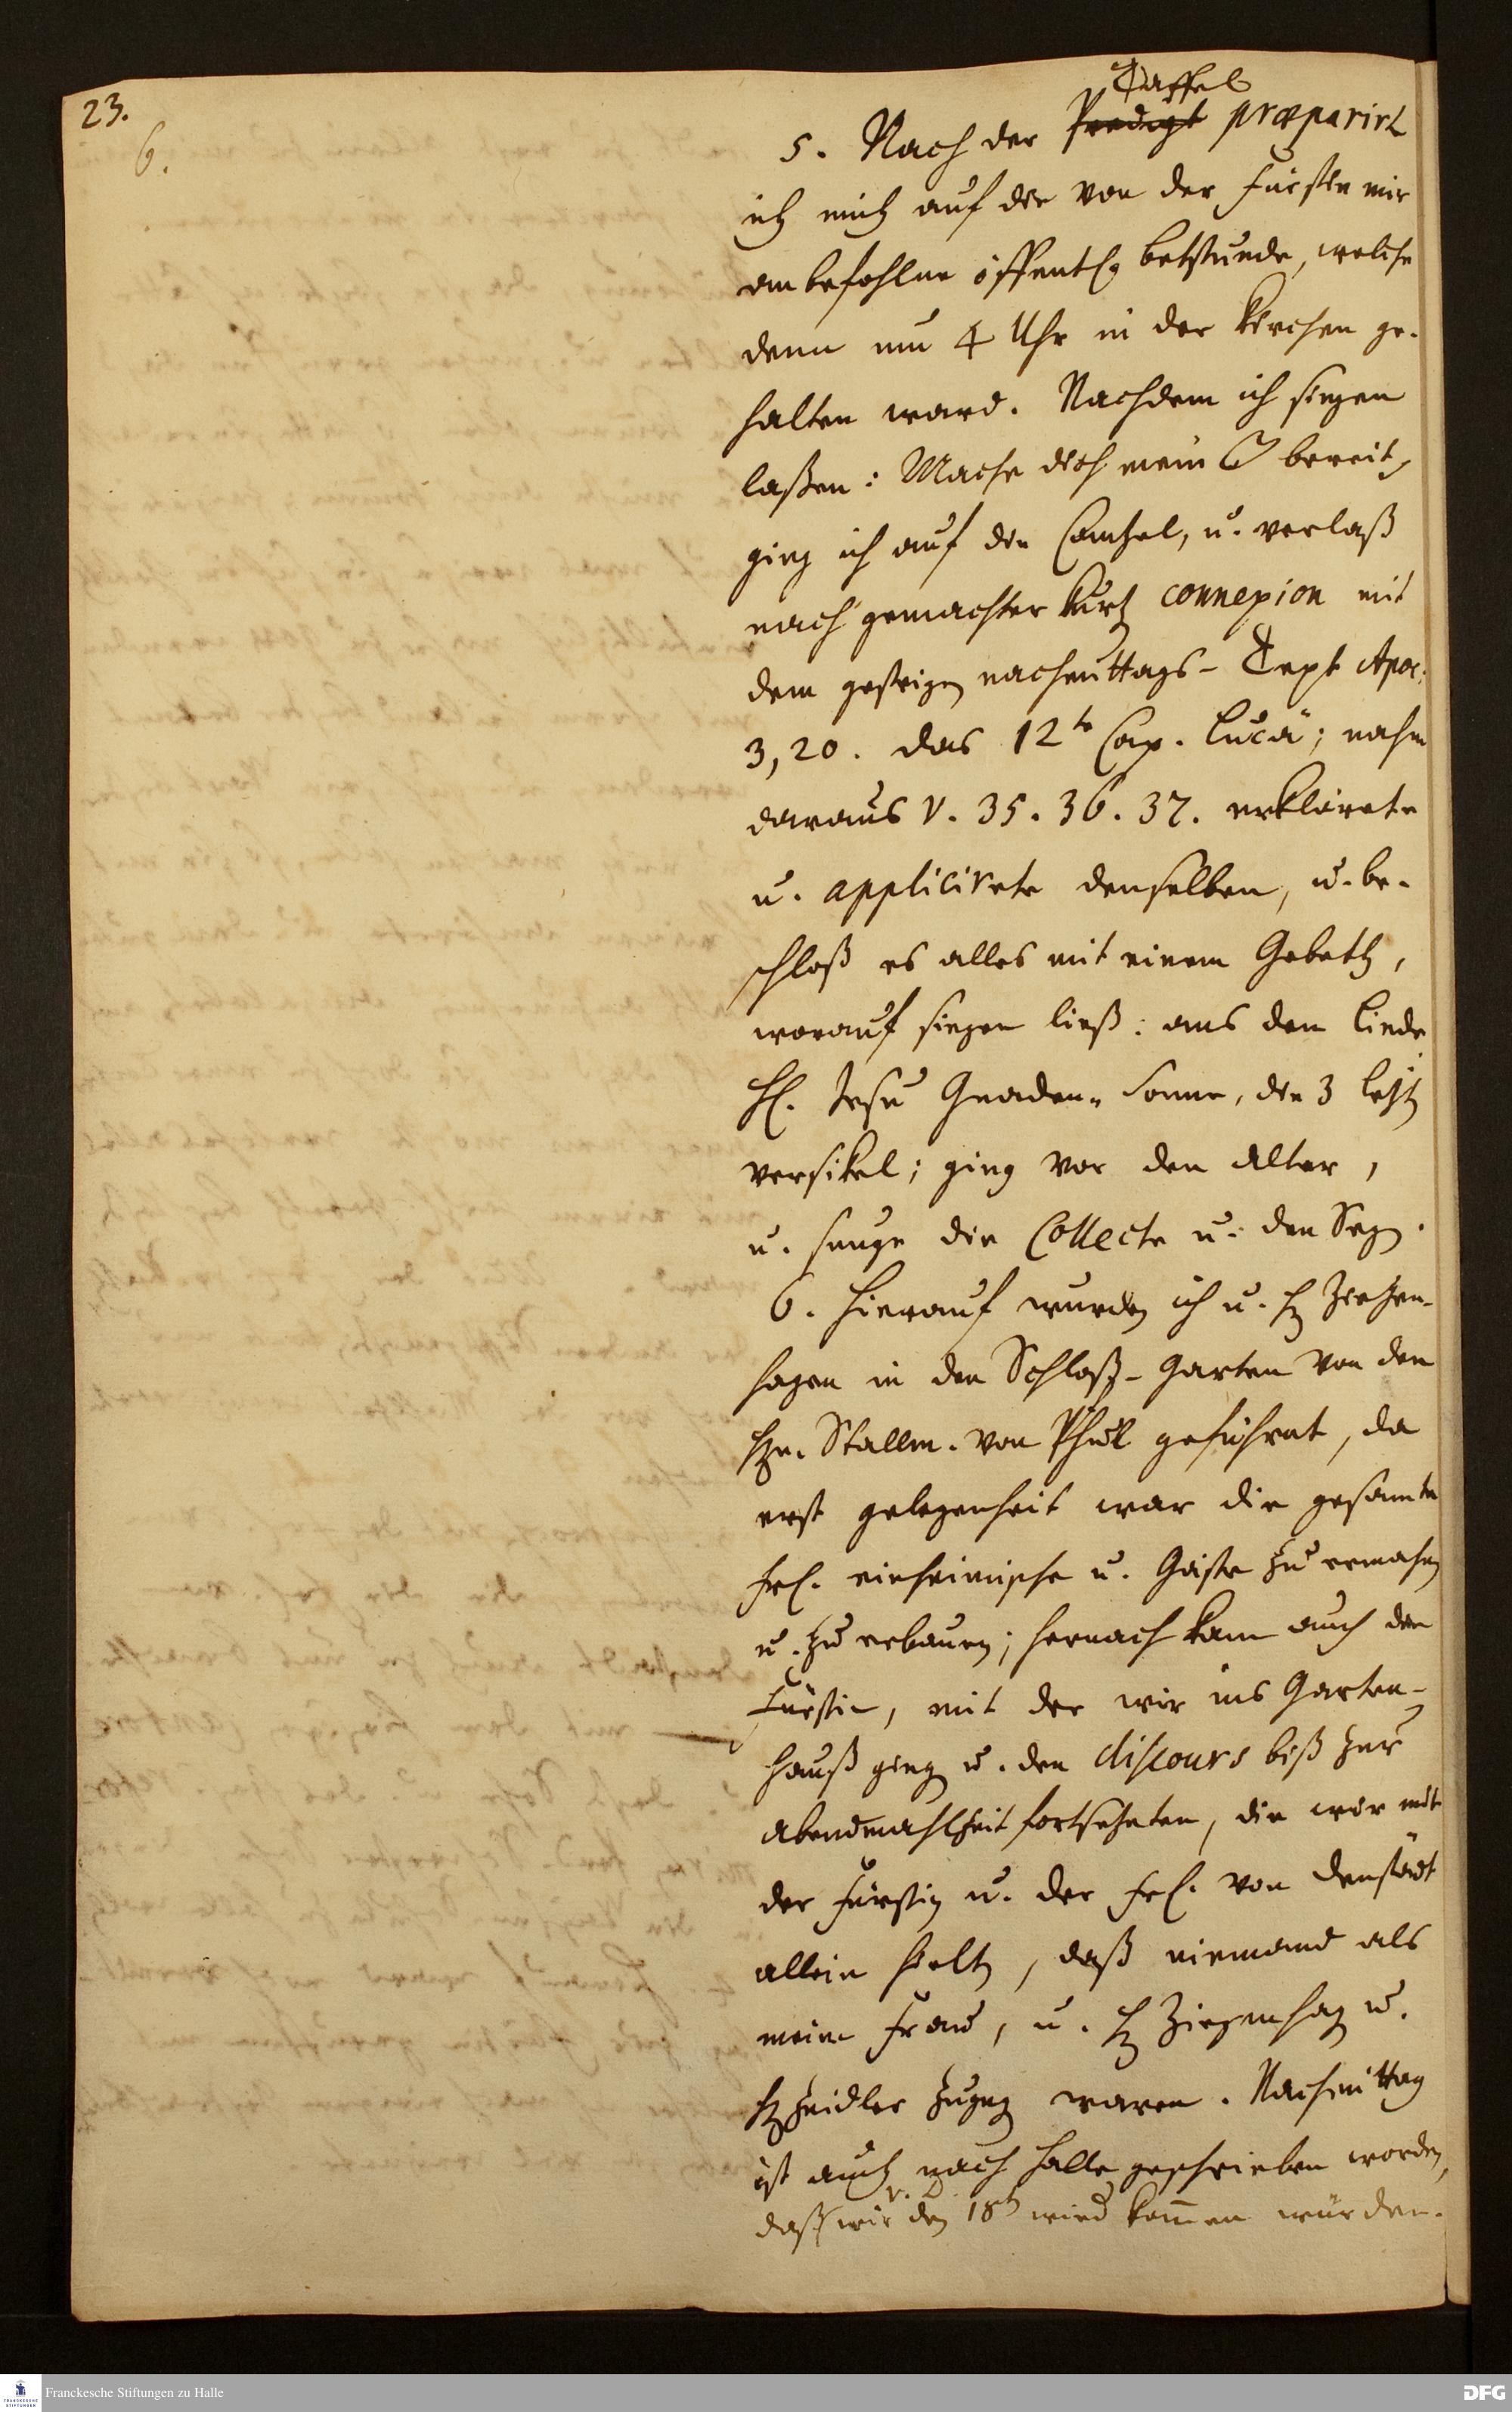 23.
6.
Taffel
5. Nach der Predigt præparirt
ich mich auf die von der Fürstin mir
anbefohlne öffentl. betstunde, welche
denn um 4 Uhr in der Kirchen ge-
halten ward. Nachdem ich singen
laßen: Mache dich mein bereit,
ging ich auf die Cantzel, u. verlaß
nach gemachter kurtz connexion mit
dem gestrigen nachmittags-Text Apoc.
3, 20. das 12te Cap. Lucä; nahm
daraus v. 35. 36. 37. erklärete
u. applicirete denselben, u. be-
schloß es alles mit einem Gebeth,
worauf singen ließ: aus dem Liede
H. Jesu Gnaden-Sonne, die 3 letzt
versikel; ging vor den Altar,
u. sunge die Collecte u. den Segen.
6. Hierauf wurden ich u. H Ziegen-
hagen in den Schloß-Garten von dem
Hrn. Stallm. von Phul geführet, da
erst gelegenheit war die gesamte
Frl. einheimische u. Gäste zu ermahnen
u. zu erbauen; hernach kam auch die
Fürstin, mit der wir ins Garten-
Hauß gingen u. den discours biß zur
Abendmahlzeit fortsetzten, die wir mit
der Fürstin u. der Frl. von Denstädt
allein hielten, daß niemand als
meine Frau, u. H Ziegenhagen u.
H Zeidler zugegen waren. Nachmittag
ist auch nach Halle geschrieben worden,
v. D.
daß wir den 18t wird kommen würden.
Franckesche Stiftungen zu Halle
DFG